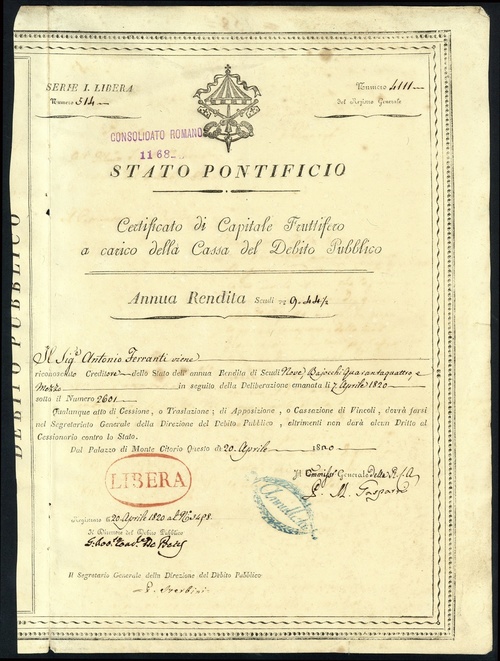 SERIE I. LIBERA
Numero 514
Numero 4111
del Registro Generale
CONSOLIDATO ROMANO
1168
STATO PONTIFICIO
Certificato di Capitale Fruttifero
a carico della Cassa del Debito Pubblico
Annua Rendita Scudi 9.44½
Il Sigr Antonio Ferranti viene
riconosciuto Creditore dello Stato dell'annua Rendita di Scudi Nove, Bajocchi Quarantaquattro, e
Mezzo in seguito della Deliberazione emanata li 7 Aprile 1820
sotto il Numero 2601
Qualunque atto di Cessione, o Traslazione, di Apposizione, o Cassazione di Vincoli, dovrà farsi
nel Segretariato Generale della Direzione del Debito Pubblico, altrimenti non darà alcun Dritto al
Cessionario contro lo Stato.
Dal Palazzo di Monte Citorio Questo dì 20 Aprile 1820
LIBERA
Il Commissº Generale della R.C.A.
Annullato
Registrato li 20 Aprile 1820 al Nº 3498
Il Direttore del Debito Pubblico
Il Segretario Generale della Direzione del Debito Pubblico
DEBITO PUBBLICO